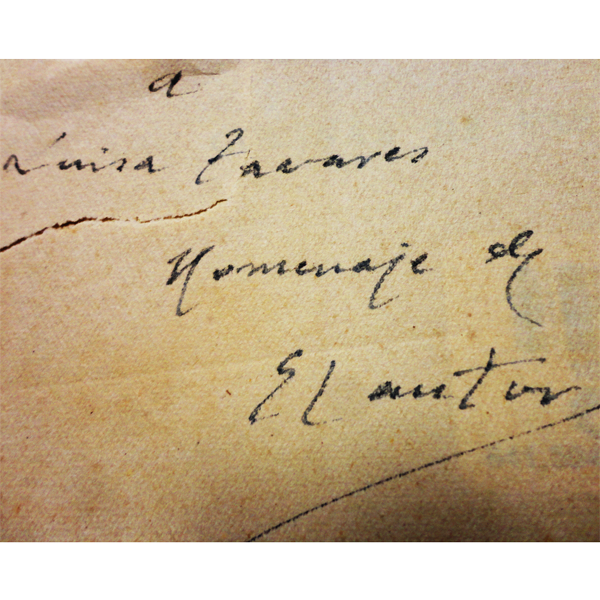 a
Luisa Tavares
Homenaje de
El autor